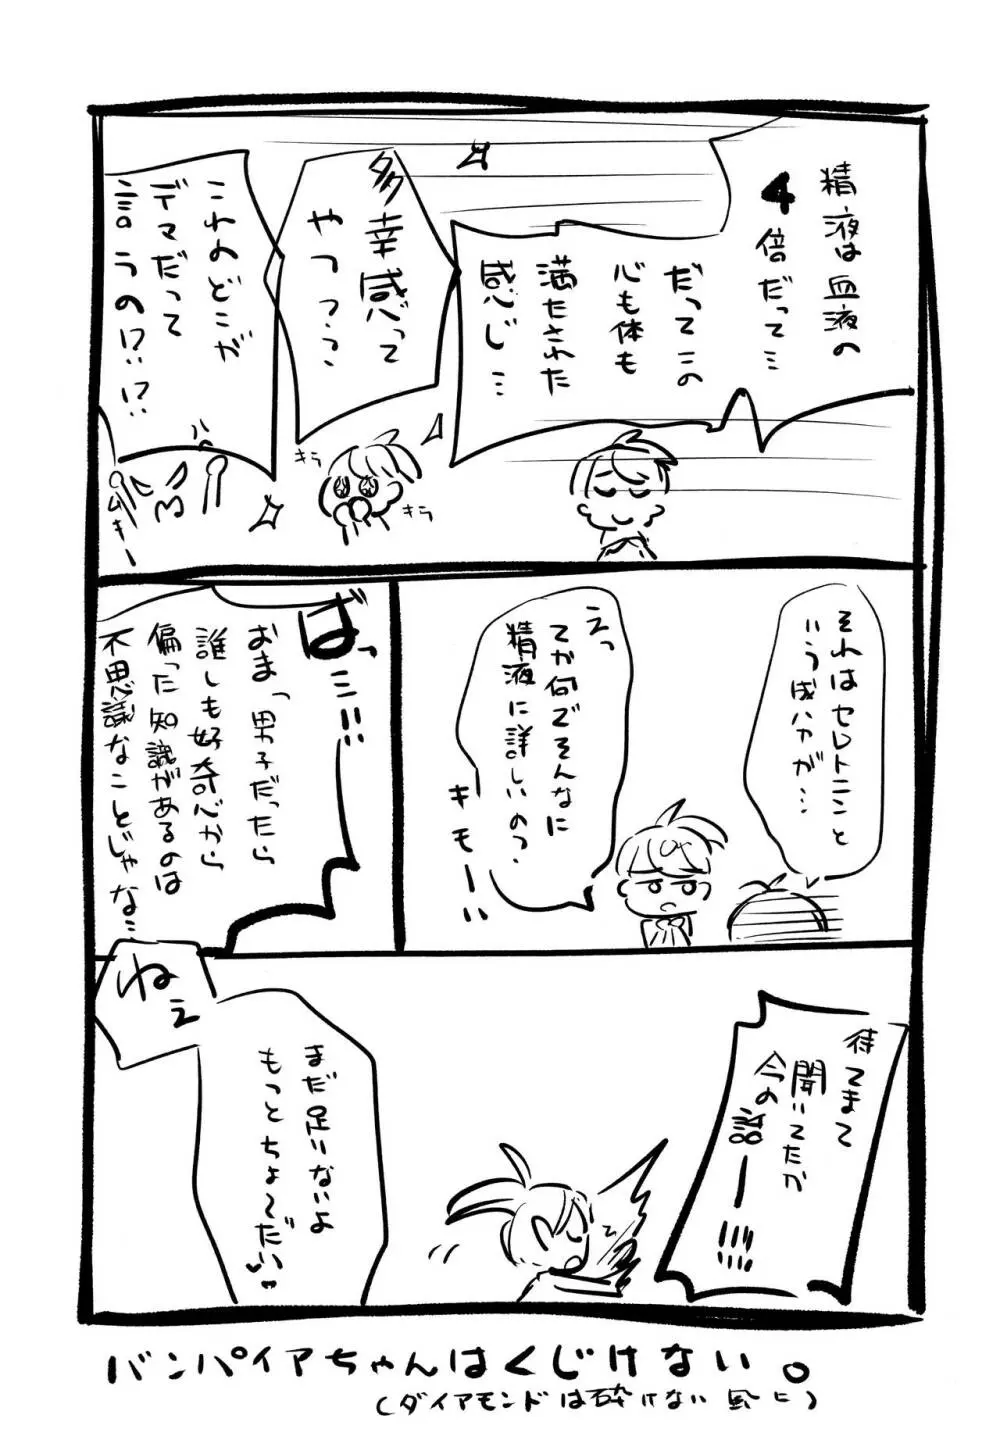 精液は血液の
4倍だって…
だってこの
心も体も
満たされた
感じ…
多幸感って
やつっっ
これのどこが
デマだって
言うの!?!?
ハ
ムキー
キラ
キラ
それはセレトニンと
いう成分が…
えっ
てか何でそんなに
精液に詳しいのっ
キモーい
ばっ…!!!
おまっ男子だったら
誰しも好奇心から
偏った知識があるのは
不思議なことじゃな…
待てまて
聞いてたか
今の説ー!!!!
ねぇ
まだ足りないよ
もっとちょ〜だい♥
バンパイアちゃんはくじけない。
(ダイアモンドは砕けない風に)